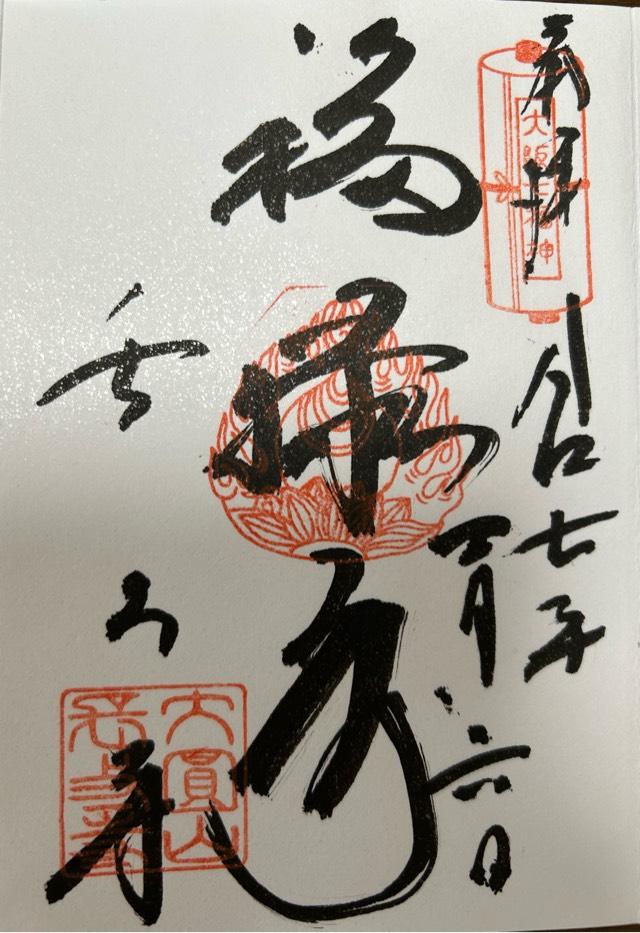 奉拝
大阪七福神
令和七年
四月六日
福禄寿
長久寺
大圓山